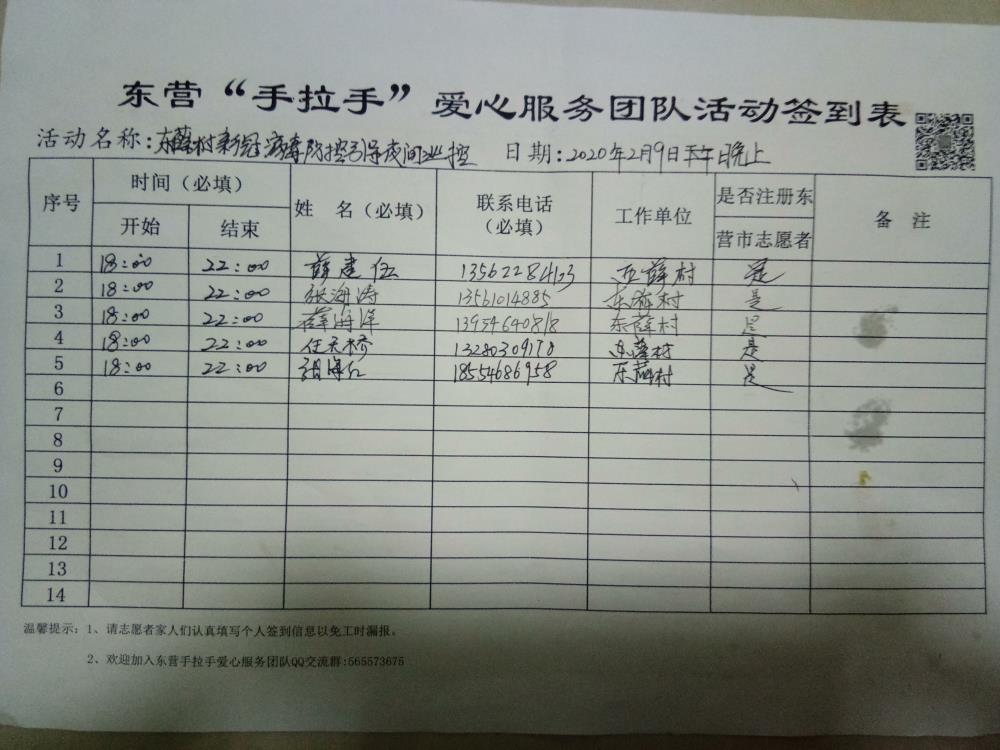 东营“手拉手”爱心服务团队活动签到表
活动名称：东薛村新冠病毒防控引导夜间 控 日期：2020年2月9日 晚上
序号 时间（必填） 姓 名（必填） 联系电话（必填） 工作单位 是否注册东营市志愿者 备 注
开始 结束
1 18:00 22:00 薛建伍 1356228 东薛村 是
2 18:00 22:00 张海涛 13561014885 东薛村 是
3 18:00 22:00 薛海洋 13954640818 东薛村 是
4 18:00 22:00 任天桥 13280309170 东薛村 是
5 18:00 22:00 张海红 18554686958 东薛村 是
6
7
8
9
10
11
12
13
14
温馨提示：1、请志愿者家人们认真填写个人签到信息以免工时漏报。
2、欢迎加入东营手拉手爱心服务团队QQ交流群:565573675